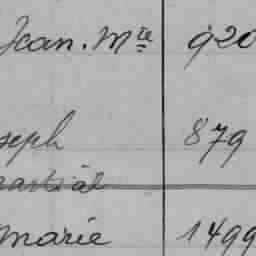 Jean. Mie 920
seph 879
martial
marie 1499